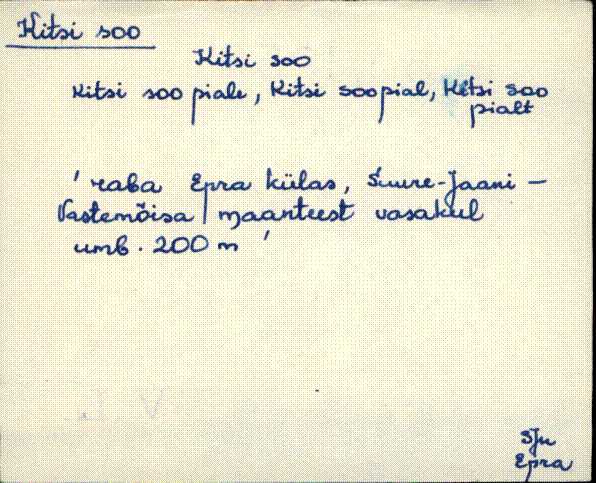 Kitsi soo
Kitsi soo
Kitsi soo piale, Kitsi soo pial, Kitsi soo
pialt
' raba Epra külas, Suure-Jaani –
Vastemõisa maanteest vasakul
umb. 200 m '
SJn
Epra